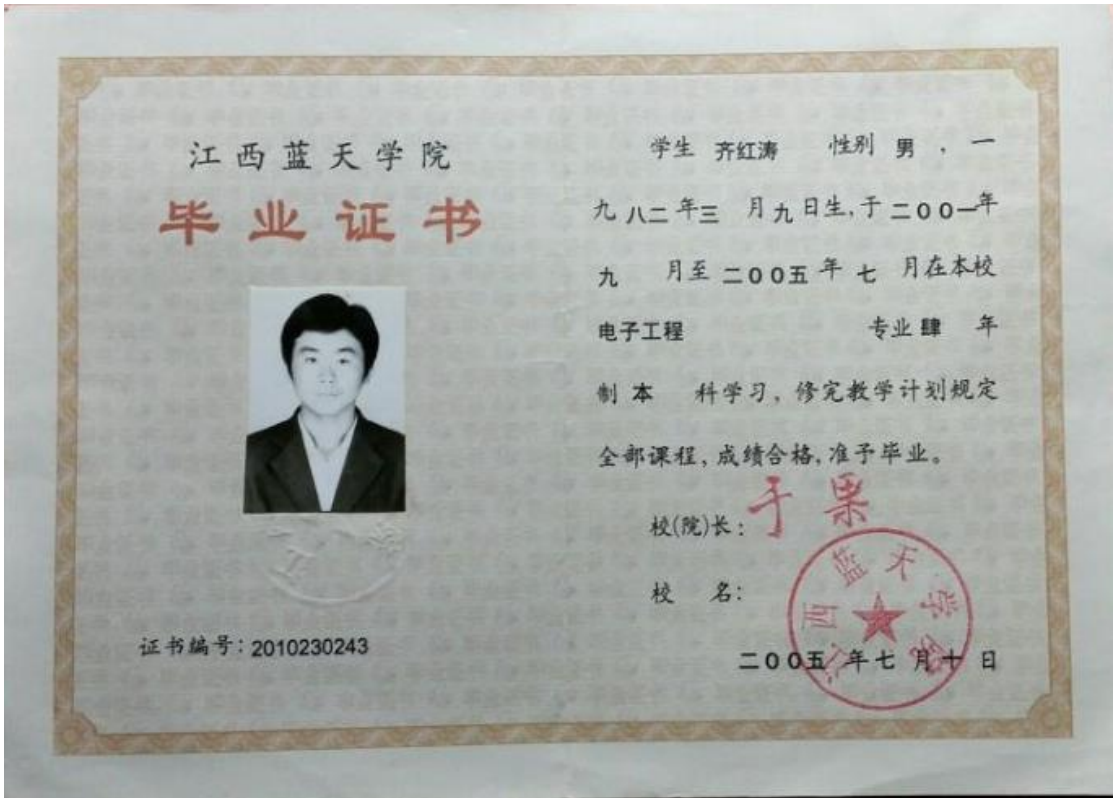 江西蓝天学院
毕业证书
证书编号：2010230243
学生 齐红涛 性别 男，一
九八二年三 月九日生，于二00一年
九 月至二00五年 七 月在本校
电子工程 专业肆 年
制 本 科学习，修完教学计划规定
全部课程，成绩合格，准予毕业。
校(院)长：于果
校 名：
江西蓝天学院
二00五 年七 月十 日